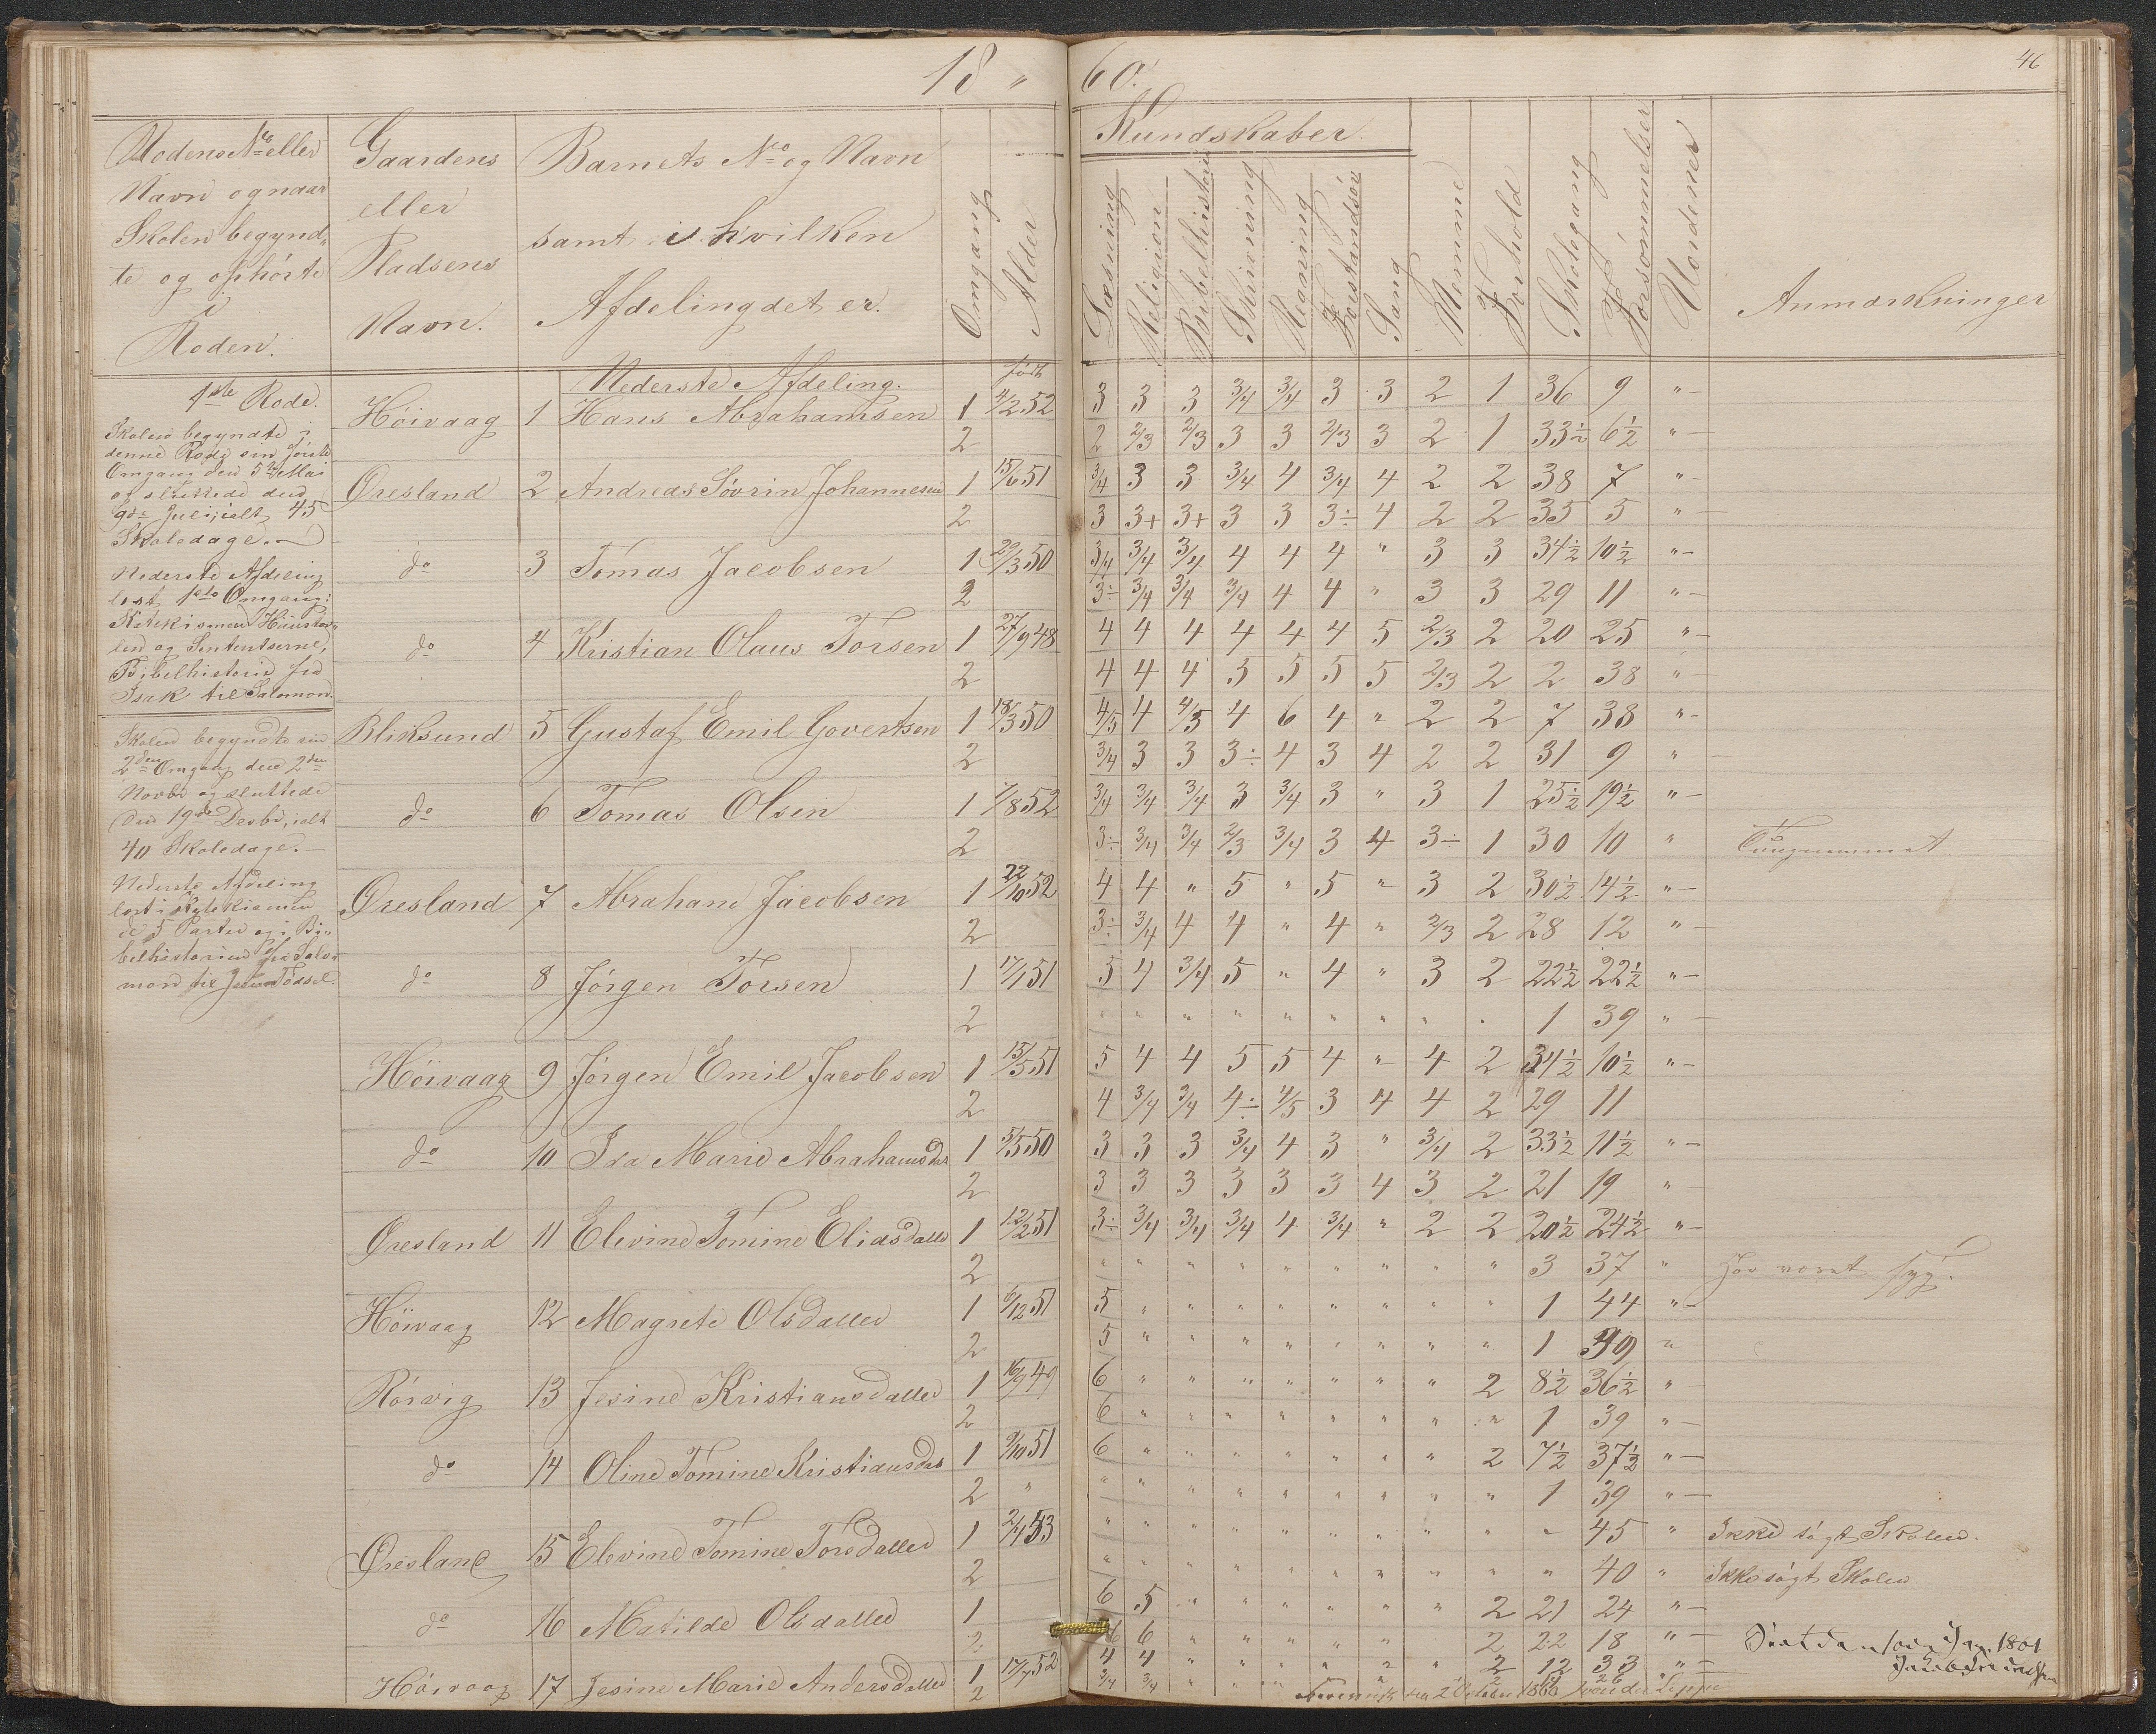 18 " 60.
46
Rodens No eller
Navn og naar
Skolen begynd-
te og ophörte
i
Roden.
Gaardens
eller
Pladsens
Navn.
Barnets No og Navn
samt i hvilken
Afdeling det er.
Omgang
Alder
Kundskaber.
Læsning
Religion
Bibelhistorie
Skrivning
Regning
Forstandsöv
Sang
Nemme
Forhold
Skolegang
Forsömmelser
Uordener
Anmærkninger
1ste Rode.
Skolen begyndte i
denne Rode sin förste
Omgang den 5te Mai
og sluttede den
9de Juli, ialt 45
Skoledage.
Nederste Afdeling
læst 1ste Omgang:
Katekismen Huustav-
len og Sententserne,
Bibelhistorie fra
Isak til Salomon.
Skolen begyndte sin
2den Omgang den 2den
Novbr og sluttede
den 19de Decbr, ialt
40 Skoledage.
Nederste Afdeling
læst i Katekismen
de 5 Parter og i Bi-
belhistorien fra Salo-
mon til Jesu Födsel.
Nederste Afdeling. født
Höivaag 1 Hans Abrahamsen 1 4/2 52 3 3 3 3/4 3/4 3 3 2 1 36 9 "
2 2 2/3 2/3 3 3 2/3 3 2 1 33½ 6½ "
Øresland 2 Andreas Sövrin Johannesen 1 15/6 51 3/4 3 3 3/4 4 3/4 4 2 2 38 7 "
2 3 3+ 3+ 3 3 3÷ 4 2 2 35 5 "
do 3 Tomas Jacobsen 1 20/3 50 3/4 3/4 3/4 4 4 4 " 3 3 34½ 10½ "
2 3÷ 3/4 3/4 3/4 4 4 " 3 3 29 11 "
do 4 Kristian Olaus Torsen 1 27/9 48 4 4 4 4 4 4 5 2/3 2 20 25 "
2 4 4 4 3 5 5 5 2/3 2 2 38 "
Bliksund 5 Gustaf Emil Govertsen 1 18/3 50 4/5 4 4/5 4 6 4 " 2 2 7 38 "
2 3/4 3 3 3÷ 4 3 4 2 2 31 9 "
do 6 Tomas Olsen 1 7/8 52 3/4 3/4 3/4 3 3/4 3 " 3 1 25½ 19½ "
2 3÷ 3/4 3/4 2/3 3/4 3 4 3÷ 1 30 10 " Tungnemmet
Øresland 7 Abraham Jacobsen 1 22/10 52 4 4 " 5 " 5 " 3 2 30½ 14½ "
2 3÷ 3/4 4 4 " 4 " 2/3 2 28 12 "
do 8 Jörgen Torsen 1 17/1 51 5 4 3/4 5 " 4 " 3 2 22½ 22½ "
2 " " " " " " " " " 1 39 "
Höivaag 9 Jörgen Emil Jacobsen 1 13/5 51 5 4 4 5 5 4 " 4 2 34½ 10½ "
2 4 3/4 3/4 4÷ 4/5 3 4 4 2 29 11
do 10 Ida Marie Abrahamsdat 1 5/5 50 3 3 3 3/4 4 3 " 3/4 2 33½ 11½ "
2 3 3 3 3 3 3 4 3 2 21 19 "
Øresland 11 Elevine Tomine Eliasdatter 1 12/2 51 3÷ 3/4 3/4 3/4 4 3/4 " 2 2 20½ 24½ "
2 " " " " " " " " " 3 37 " Har været syg.
Höivaag 12 Magrete Olsdatter 1 6/12 51 5 " " " " " " " " 1 44 "
2 5 " " " " " " " " 1 39 "
Rörvig 13 Jesine Kristiansdatter 1 16/9 49 6 " " " " " " " 2 8½ 36½ "
2 6 " " " " " " " " 1 39 "
do 14 Oline Tomine Kristiansdat 1 9/10 51 6 " " " " " " " 2 7½ 37½ "
2 " " " " " " " " " " 1 39 "
Øresland 15 Elevine Tomine Torsdatter 1 2/4 53 " " " " " " " " " " 45 " Ikke sögt Skolen.
2 " " " " " " " " " " 40 " Ikke sögt Skolen
do 16 Matilde Olsdatter 1 6 5 " " " " " " 2 21 24 "
2 6 6 " " " " " 2 22 18 "
Höivaag 17 Jesine Marie Andersdatter 1 17/7 52 4 4 " " " " " " 2 12 33 "
2 3/4 3/4 " " " 2 14 26 "
1861
2 October 1860